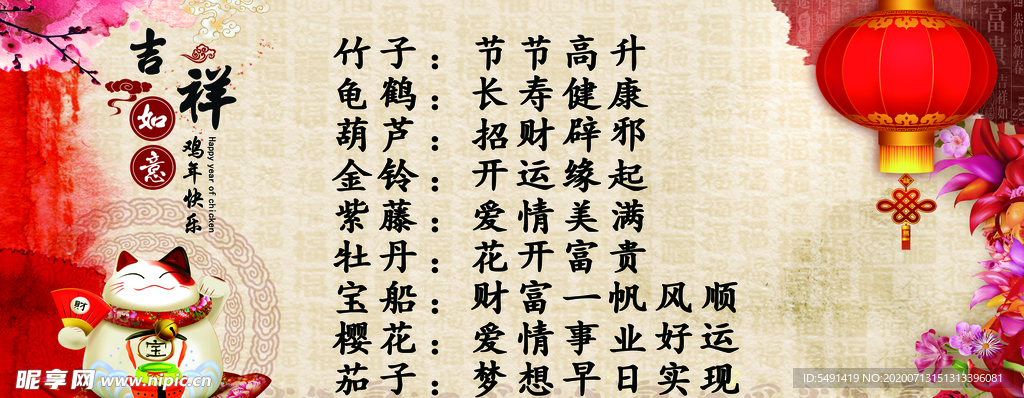 吉祥
如意
鸡年快乐
Happy year of chicken
竹子：节节高升
龟鹤：长寿健康
葫芦：招财辟邪
金铃：开运缘起
紫藤：爱情美满
牡丹：花开富贵
宝船：财富一帆风顺
樱花：爱情事业好运
茄子：梦想早日实现
财
宝
富贵
恭贺新春
吉祥如
昵享网 www.nipic.cn
ID:5491419 NO:20200713151313396081